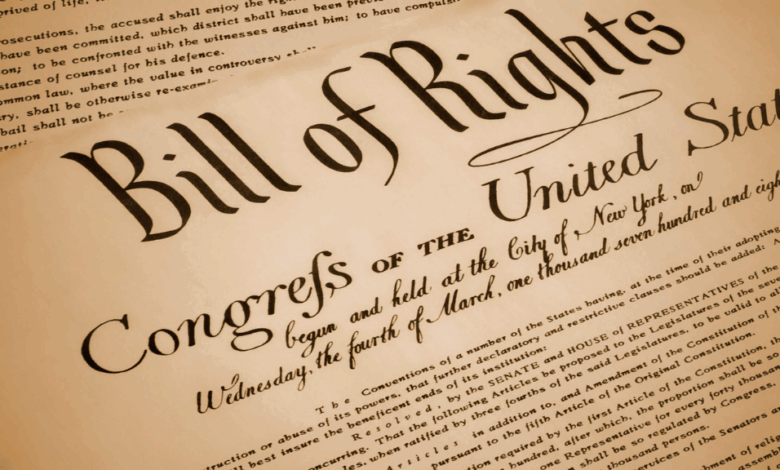 prived of life,
rosecutions, the accused shall enjoy the
have been committed, which district shall have been
on; to be confronted with the witnesses against him; to have
stance of counsel for his defence.
ommon law, where the value in controversy
ry, shall be otherwise
bail shall not be
Bill of Rights
Congreſs OF THE United
begun and held at the City of New York, on
Wednesday, the fourth of March, one thousand seven hundred and
The Conventions of a number of the States having, at the time of their adopting
struction or abuse of its powers, that further declaratory and restrictive clauses should be added:
best insure the beneficent ends of its institution:
Resolved, by the SENATE and HOUSE of REPRESENTATIVES of the
concurring. That the following Articles be proposed to the Legislatures of the
when ratified by three fourths of the said Legislatures, to be valid to
Articles in addition to, and Amendment of the Constitution of
pursuant to the fifth Article of the Original Constitution.
required by the first Article of the Constitution,
hundred, after which, the proportion shall be
one Representative for every forty
shall be so regulated by Congress.
thousand persons.
of the Senators